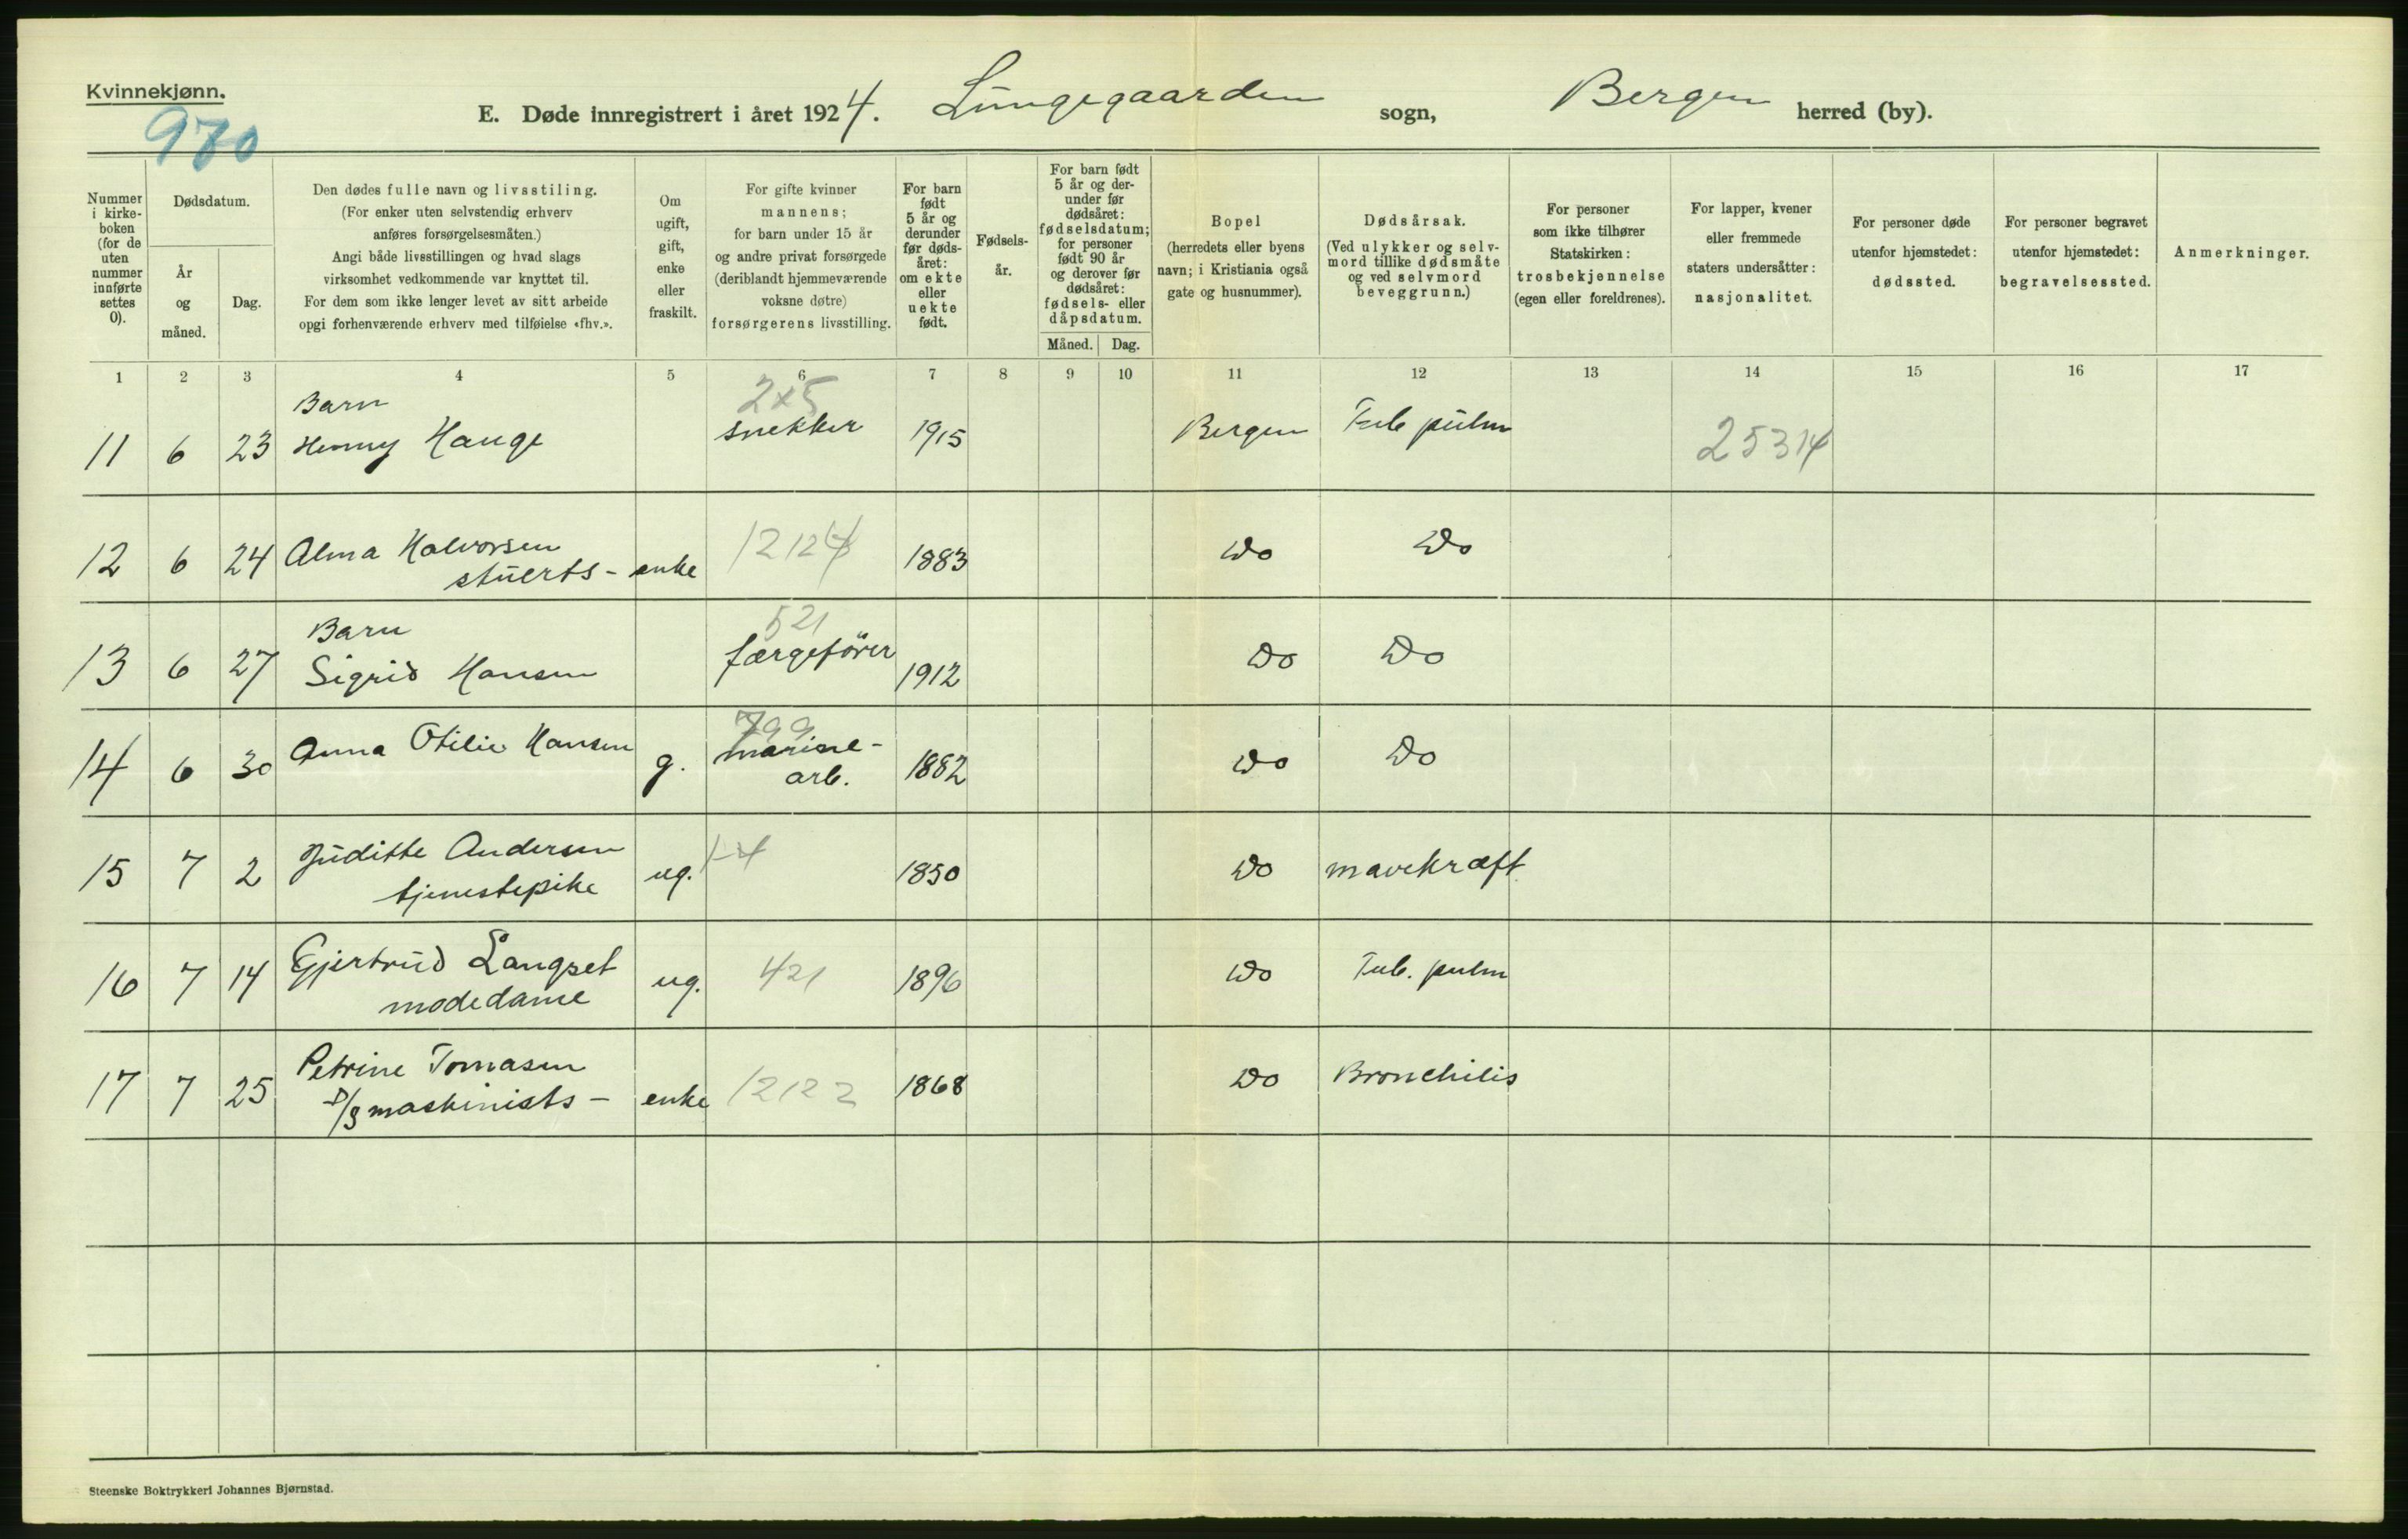 Kvinnekjønn.
970
E. Døde innregistrert i året 1924. Lungegaarden sogn, Bergen herred (by).
Nummer i kirke-boken (for de uten nummer innførte settes 0).
Dødsdatum.
År og måned.
Dag.
Den dødes fulle navn og livsstiling.
(For enker uten selvstendig erhverv
anføres forsørgelsesmåten.)
Angi både livsstillingen og hvad slags
virksomhet vedkommende var knyttet til.
For dem som ikke lenger levet av sitt arbeide
opgi forhenværende erhverv med tilføielse «fhv.».
Om
ugift,
gift,
enke
eller
fraskilt.
For gifte kvinner
mannens;
for barn under 15 år
og andre privat forsørgede
(deriblandt hjemmeværende
voksne døtre)
forsørgerens livsstilling.
For barn
født
5 år og
derunder
før døds-
året:
om ekte
eller
uekte
født.
Fødsels-
år.
For barn født
5 år og der-
under før
dødsåret:
fødselsdatum;
for personer
født 90 år
og derover før
dødsåret:
fødsels- eller
dåpsdatum.
Måned. Dag.
Bopel
(herredets eller byens
navn; i Kristiania også
gate og husnummer).
Dødsårsak.
(Ved ulykker og selv-
mord tillike dødsmåte
og ved selvmord
beveggrunn.)
For personer
som ikke tilhører
Statskirken:
trosbekjennelse
(egen eller foreldrenes).
For lapper, kvener
eller fremmede
staters undersåtter:
nasjonalitet.
For personer døde
utenfor hjemstedet:
dødssted.
For personer begravet
utenfor hjemstedet:
begravelsessted.
Anmerkninger.
1 2 3 4 5 6 7 8 9 10 11 12 13 14 15 16 17
Barn 2x5
11 6 23 Henny Hauge snekker 1915 Bergen Tub pulm 25314
12 6 24 Alma Halvorsen 1883 Do Do
stuerts- enke
Barn 521
13 6 27 Sigrid Hansen færgefører 1912 Do Do
799
14 6 30 Anna Otilie Hansen g. marine- 1882 Do Do
arb.
15 7 2 Juditte Andersen ug. 1850 Do mavekræft
tjenestepike
16 7 14 Gjertrud Langset ug. 421 1896 Do Tub. pulm
modedame
17 7 25 Petrine Tomasen 12122 1868 Do Bronchitis
D/S maskinists- enke
Steenske Boktrykkeri Johannes Bjørnstad.